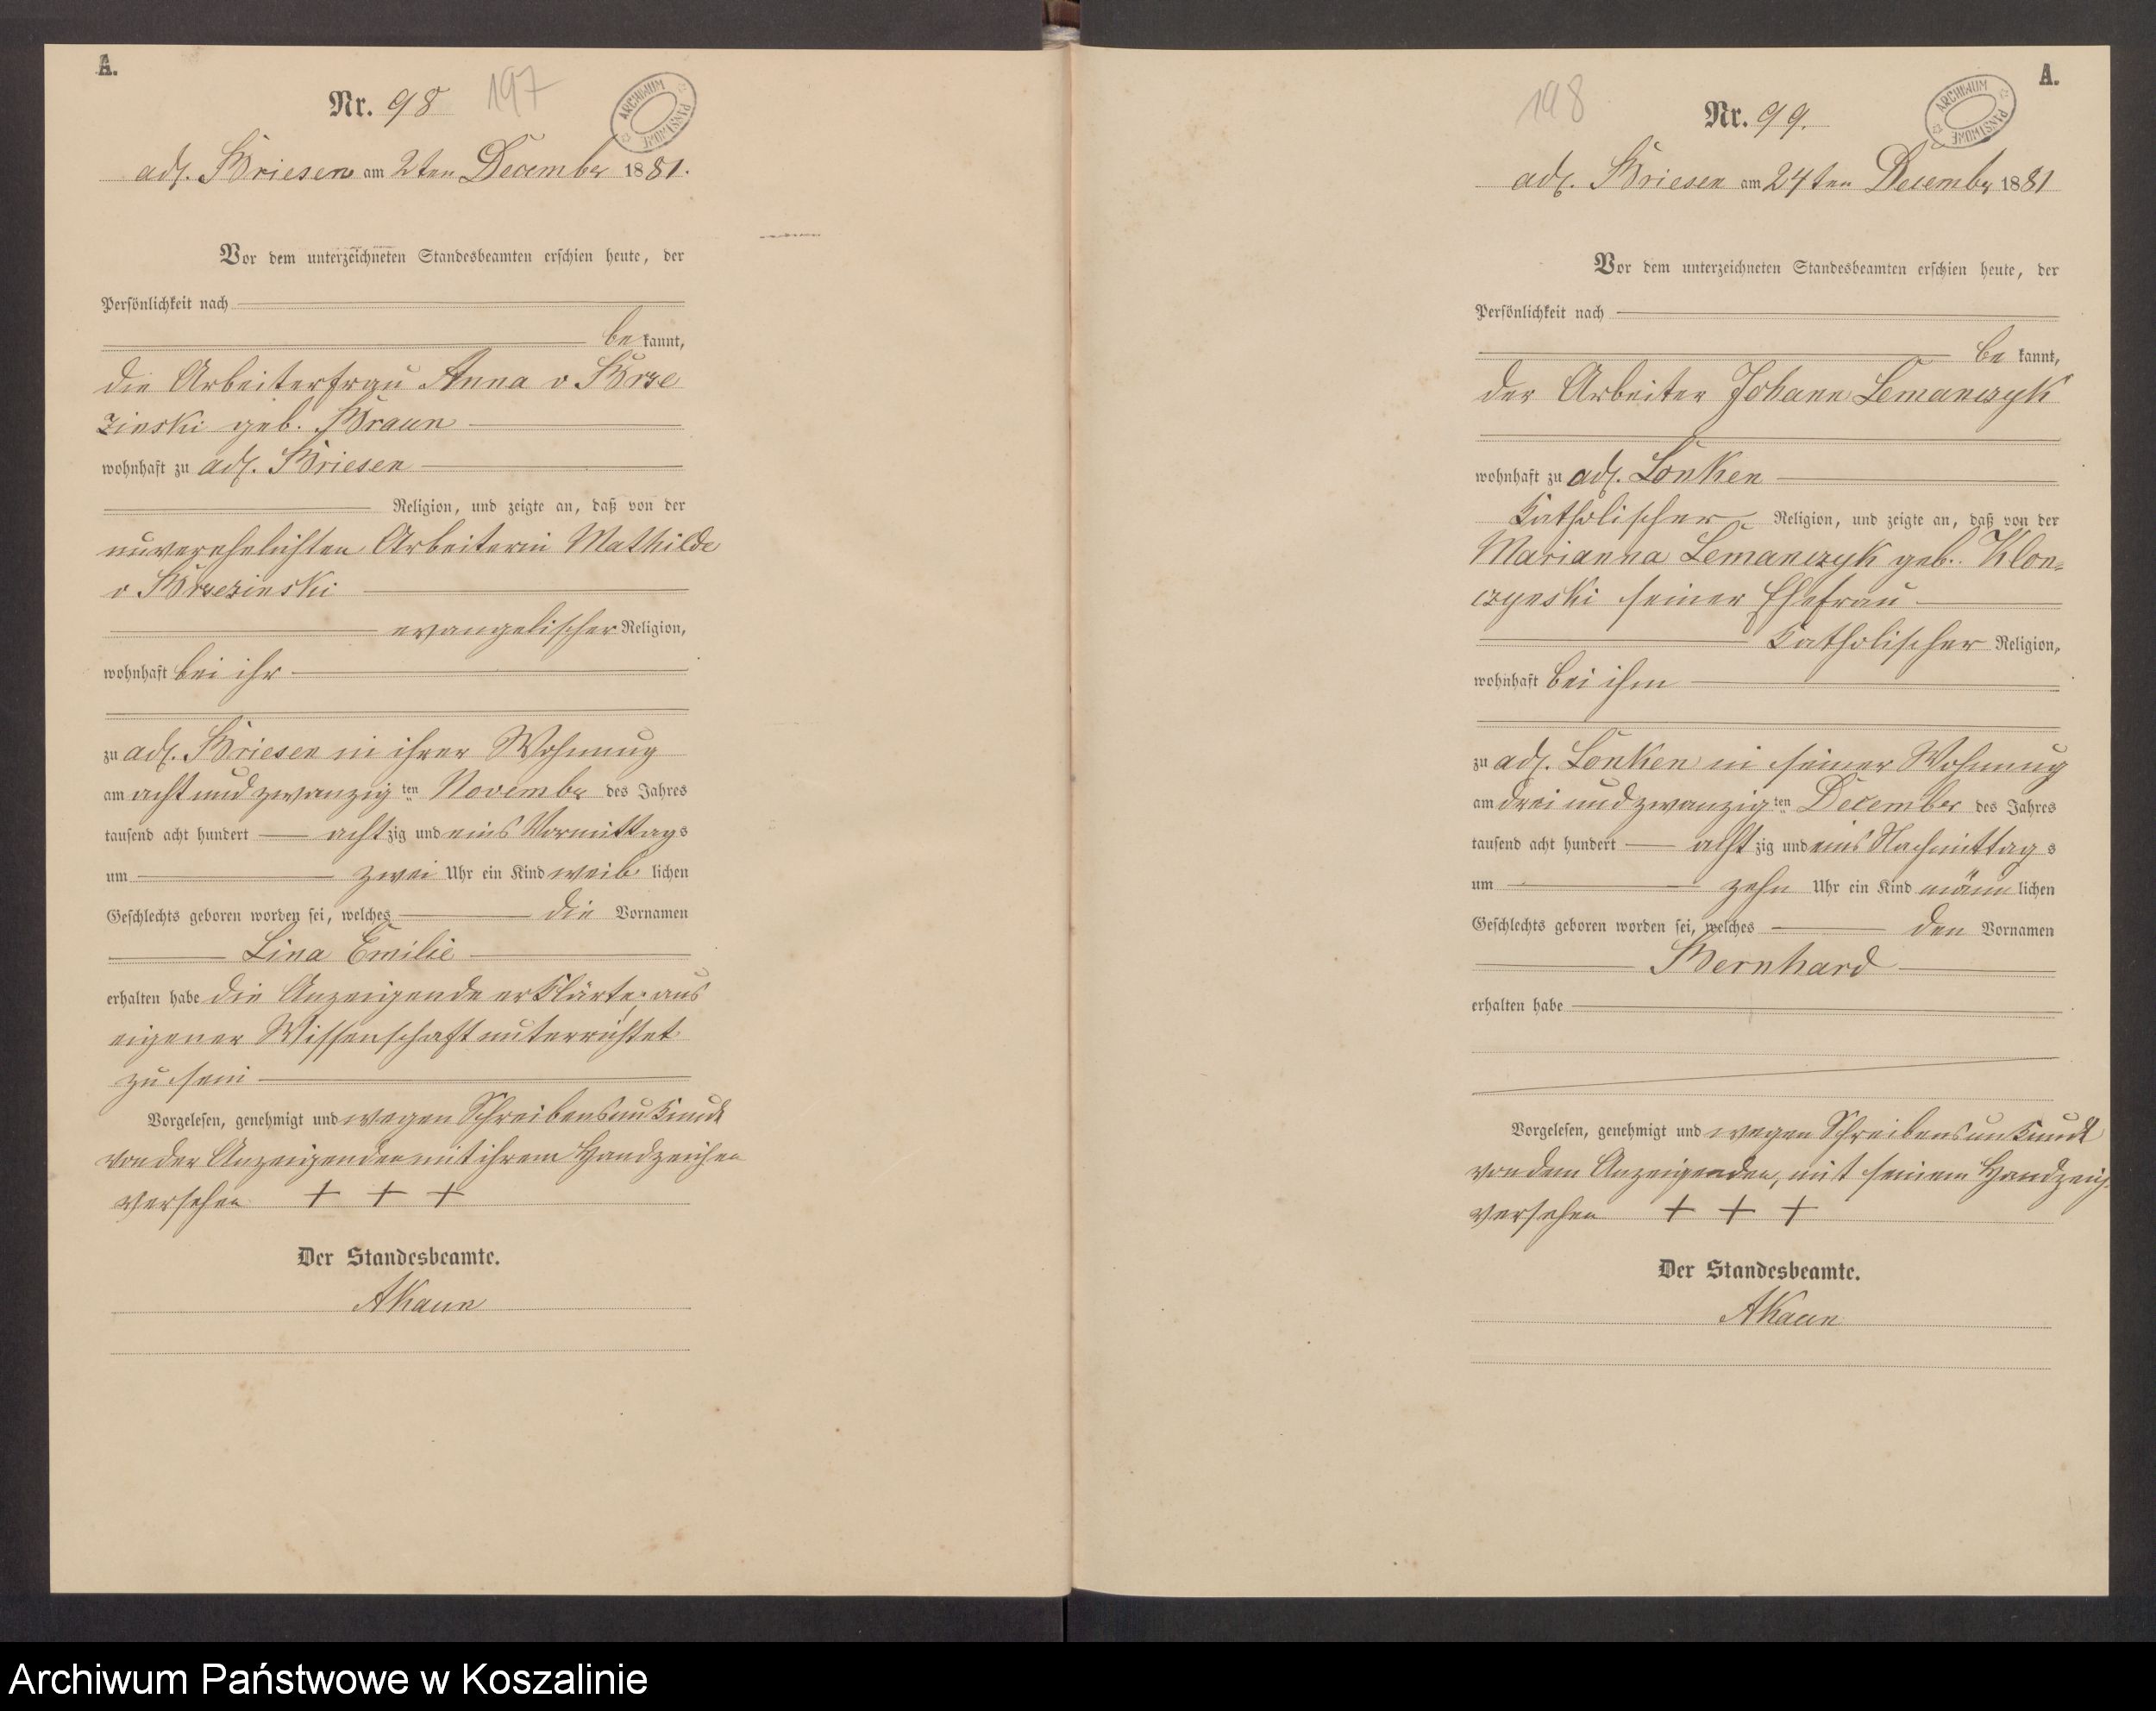 A.
Nr. 98
197
ARCHIWUM PAŃSTWOWE
adl. Briesen am 2ten December 1881.
Vor dem unterzeichneten Standesbeamten erschien heute, der
Persönlichkeit nach
be kannt,
die Arbeiterfrau Anna v Brze
zinski geb. Braun
wohnhaft zu adl. Briesen
Religion, und zeigte an, daß von der
unverehelichten Arbeiterin Mathilde
v Brzezinski
evangelischer Religion,
wohnhaft bei ihr
zu adl. Briesen in ihrer Wohnung
am acht und zwanzig ten November des Jahres
tausend acht hundert acht zig und eins Vormittags
um zwei Uhr ein Kind weib lichen
Geschlechts geboren worden sei, welches die Vornamen
Lina Emilie
erhalten habe die Anzeigende erklärte, aus
eigener Wissenschaft unterrichtet
zu sein
Vorgelesen, genehmigt und wegen Schreibensunkunde
von der Anzeigenden mit ihrem Handzeichen
versehen + + +
Der Standesbeamte.
AKaun
A.
198
Nr. 99.
ARCHIWUM PAŃSTWOWE
adl. Briesen am 24ten December 1881
Vor dem unterzeichneten Standesbeamten erschien heute, der
Persönlichkeit nach
be kannt,
der Arbeiter Johann Lemanczyk
wohnhaft zu adl. Lonken
Katholischer Religion, und zeigte an, daß von der
Marianna Lemanczyk geb. Klon=
czynski seiner Ehefrau
Katholischer Religion,
wohnhaft bei ihm
zu adl. Lonken in seiner Wohnung
am drei und zwanzig ten December des Jahres
tausend acht hundert acht zig und eins Nachmittag s
um zehn Uhr ein Kind männ lichen
Geschlechts geboren worden sei, welches den Vornamen
Bernhard
erhalten habe
Vorgelesen, genehmigt und wegen Schreibensunkunde
von dem Anzeigenden, mit seinem Handzeich.
versehen + + +
Der Standesbeamte.
AKaun
Archiwum Państwowe w Koszalinie